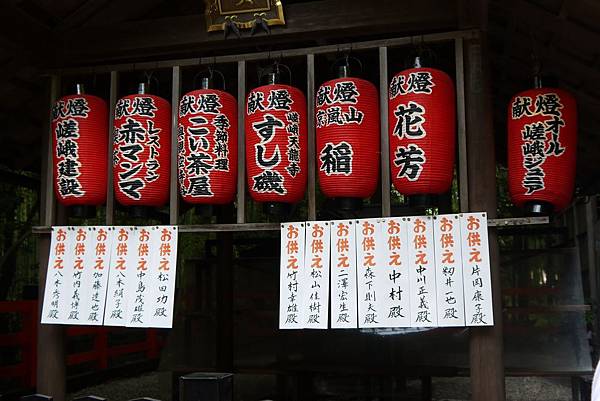 献燈
嵯峨建設
献燈
レストラン
赤マンマ
献燈
季節料理
こい茶屋
献燈
嵯峨天龍寺
すし磯
献燈
京嵐山
稲
献燈
花芳
献燈
オール
嵯峨ジニア
お供え 八木秀明殿
お供え 竹内義博殿
お供え 加藤達也殿
お供え 八木絹子殿
お供え 中島茂雄殿
お供え 松田功殿
お供え 竹村幸雄殿
お供え 松山佳樹殿
お供え 二澤宏生殿
お供え 森下則夫殿
お供え 中村殿
お供え 中川正義殿
お供え 一成殿
お供え 片岡康子殿